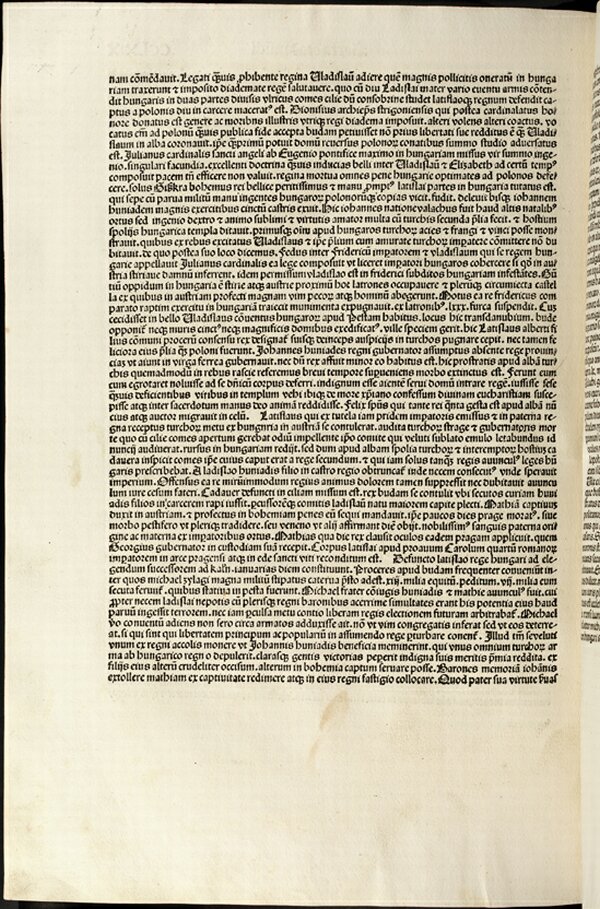 nam cōmēdauit. Legati q̄uis ꝓhibente regina Uladislaū adiere quē magnis pollicitis oneratū in hunga
riam traxerunt ⁊ imposito diademate regē salutauere. quo cū diu Ladislai mater vario euentu armis cōten
dit hungaris in duas partes diuisis vlricus comes cilie dū consobrine studet latislaoqꝫ regnum defendit ca
ptus a polonis diu in carcere maceratꝰ est. Dionisius archiep̄s strigoniensis qui postea cardinalatus ho
nore donatus est genere ac moribus illustris vtriqꝫ regi diadema imposuit. alteri volens alteri coactus. vo
catus em̄ ad polonū q̄uis publica fide accepta budam petiuisset nō prius libertati sue redditus ē qꝫ Uladi
slaum in alba coronauit. ip̄e qꝫprimū potuit domū reuersus polonorꝝ conatibus summo studio aduersatus
est. Julianus cardinalis sancti angeli ab Eugenio pontifice maximo in hungariam missus vir summo inge
nio. singulari facundia. excellenti doctrina q̄uis inducias belli inter Uladislaū ⁊ Elizabeth ad certū tempꝰ
composuit pacem tn̄ efficere non valuit. regina mortua omnes pene hungarie optimates ad polonos defe
cere. solus Giskra bohemus rei bellice peritissimus ⁊ manu ꝓmptꝰ latislai partes in hungaria tutatus est.
qui sepe cū parua militū manu ingentes hungarorꝝ polonorūqꝫ copias vicit. fudit. deleuit busqꝫ iohannem
huniadem magnis exercitibus cinctū castris exuit. Hic iohannes natione valachus fuit haud altis natalibꝰ
ortus sed ingenio dextro ⁊ animo sublimi ⁊ virtutis amator multa cū turchis secunda p̄lia fecit. ⁊ hostium
spolijs hungarica templa ditauit. primusqꝫ oīm apud hungaros turchorꝝ acies ⁊ frangi ⁊ vinci posse mon
strauit. quibus ex rebus excitatus Uladislaus ⁊ ip̄e p̄lium cum amurate turchorꝝ imperatore cōmittere nō du
bitauit. de quo postea suo loco dicemus. Fedus inter fridericū imperatorem ⁊ vladislaum qui se regem hun
garie appellauit Julianus cardinalis ea lege composuit vt liceret imperatori hungaros cohercere si qd̄ in au
stria stiriaue damnū inferrent. idem permissum vladislao est in friderici subditos hungariam infestātes.
tiū oppidum in hungaria ē stirie atqꝫ austrie proximū hoc latrones occupauere ⁊ plerūqꝫ circumiecta castel
la ex quibus in austriam profecti magnam vim pecorꝝ atqꝫ hominū abegerunt. Motus ea re fridericus com
parato raptim exercitu in hungariā traiecit munimenta expugnauit. ex latronibꝰ .lxxx. furca suspendit. Cuꝫ
cecidisset in bello Uladislaus cōuentus hungarorꝝ apud Pestam habitus. locus hic transdanubium. bude
opponiť necqꝫ muris cinctꝰ necqꝫ magnificis domibus exedificatꝰ. ville speciem gerit. hic Latislaus alberti fi
lius cōmuni procerū consensu rex designať suisqꝫ deinceps auspicijs in turchos pugnare cepit. nec tamen fe
liciora eius p̄lia qꝫ poloni fuerunt. Johannes huniades regni gubernator assumptus absente rege prouin
cias vt aiunt in virga ferrea gubernauit. nec dū rex affuit minor eo habitus est. hic prostratis apud albā tur
chis quemadmodū in rebus rascie referemus breui tempore superuiuens morbo extinctus est. Ferunt eum
cum egrotaret noluisse ad se dn̄icū corpus deferri. indignum esse aiente serui domū intrare regē. iussisse sese
q̄uis deficientibus viribus in templum vehi ibiqꝫ de more xp̄iano confessum diuinam eucharistiam susce
pisse atqꝫ inter sacerdotum manus deo animā reddidisse. Felix sp̄us qui tante rei q̄nta gesta est apud albā nū
cius atqꝫ auctor migrauit in celū. Latislaus qui ex tutela iam pridem imperatoris emissus ⁊ in paterna re
gna receptus turchoꝝ metu ex hungria in austriā se contulerat. audita turchoꝝ strage ⁊ gubernatoris mor
te quo cū cilie comes apertum gerebat odiū impellente ip̄o comite qui veluti sublato emulo letabundus id
nuncij audiuerat. rursus in hungariam redijt. sed dum apud albam spolia turchoꝝ ⁊ interemptorꝝ hostiū ca
dauera inspicit comes ip̄e cuius caput erat a rege secundum. ⁊ qui iam solus tanqꝫ regis auunculꝰ leges hū
garis prescribebat. A ladislao huniadis filio in castro regio obtruncať inde necem consecutꝰ vnde sperauit
imperium. Offensus ea re miruimmodum regius animus dolorem tamen suppressit nec dubitauit auuncu
lum iure cesum fateri. Cadauer defuncti in ciliam missum est. rex budam se contulit vbi secutos curiam huni
adis filios in carcerem rapi iussit. pulsoremqꝫ comitis ladislai natu maiorem capite plecti. Mathiā captiuuꝫ
duxit in austriaꝫ. ⁊ profectus in bohemiam penes eū sequi mandauit. ip̄e paucos dies prage moratꝰ. siue
morbo pestifero vt pleriqꝫ tradidere. seu veneno vt alij affirmant diē obijt. nobilissimꝰ sanguis paterna ori
gine ac materna ex imperatoribus ortus. Mathias qua die rex clausit oculos eadem pragam applicuit. quem
Georgius gubernator in custodiam suā recepit. Corpus latislai apud proauum Carolum quartū romanorꝝ
imperatorem in arce pragensi atqꝫ in ede sancti viti reconditum est. Defuncto latislao rege hungari ad eli
gendum successorem ad kal'n. ianuarias diem constituunt. Proceres apud budam frequenter conueniūt in
ter quos michael sylagi magna militū stipatus caterua p̄sto adest. xiij. milia equitū. peditum. vij. milia eum
secuta feruní. quibus statiua in pesta fuerunt. Michael frater cōiugis huniadis ⁊ mathie auunculꝰ fuit. cui
ꝓpter necem ladislai nepotis cū plerisqꝫ regni baronibus acerrime simultates erant his potentia eius haud
paruū ingessit terrorem. nec iam pecula metu contio liberam regis electionem futuram arbitrabať. Michael
ꝟo conuentū adiens non sero circa armatos adduxisse ait. nō vt vim congregatis inferat sed vt eos deterre
at. si qui sint qui libertatem principum ac popularū in assumendo rege ꝑturbare conenť. Illud tm̄ seseveluti
vnum ex regni accolis monere vt Johannis huniadis beneficia meminerint. qui vnus omnium turchorꝝ ar
ma ab hungarico regno depulerit. clarasqꝫ gentis victorias peperit indigna suis meritis p̄mia reddita. ex
filijs eius alterū crudeliter occisum. alterum in bohemia captum seruare posse. Barones memoriā iohānis
extollere mathiam ex captiuitate redimere atqꝫ in eius regni fastigio collocare. Quod pater sua virtute